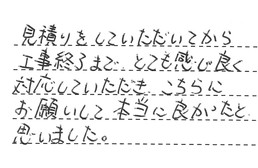 見積りをしていただいてから
工事終了まで、とても感じ良く
対応していただき、こちらに
お願いして本当に良かったと
思いました。